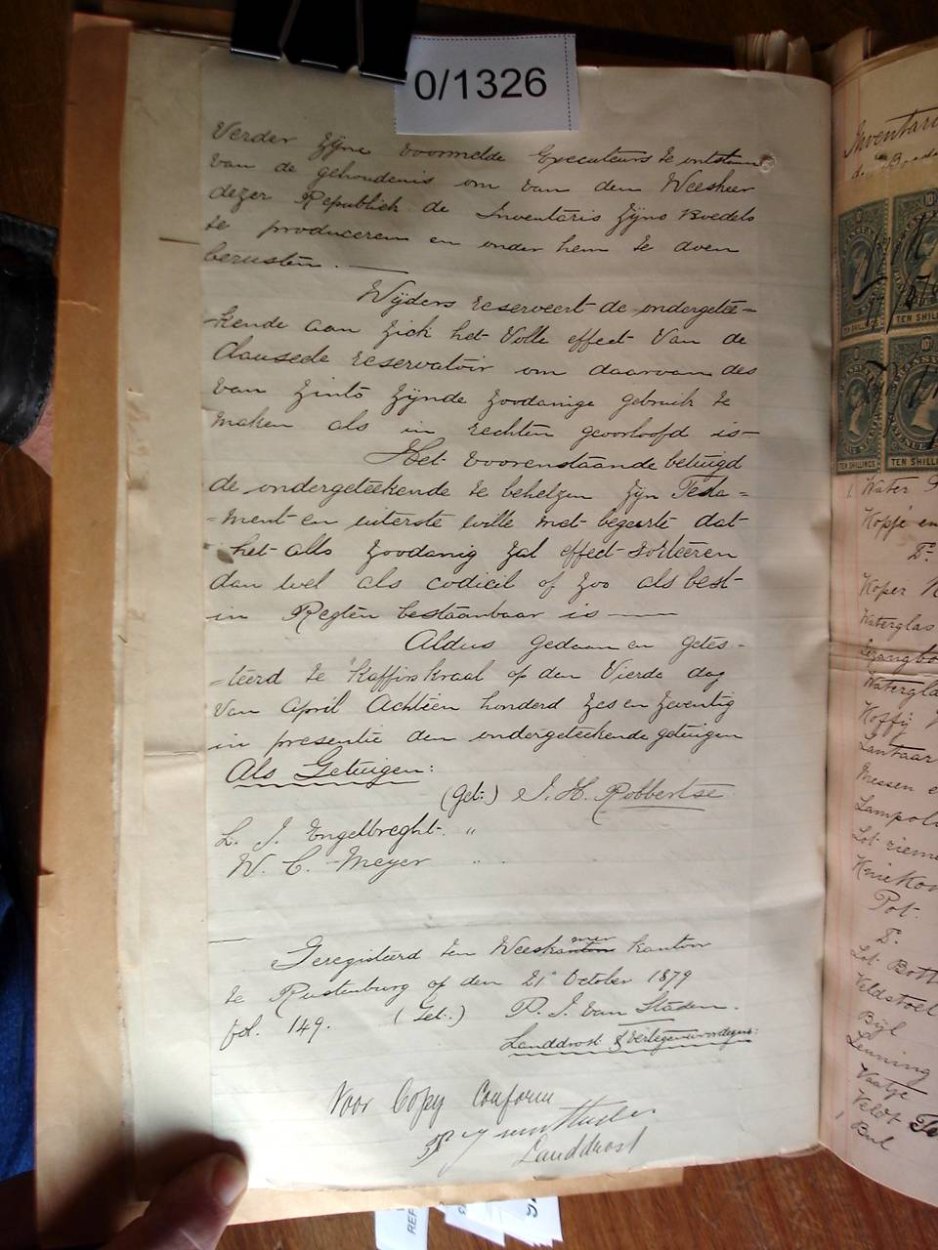 0/1326
Verder zijne voormelde Executeurs te ontstaan
van de gehoudenis om van den Weesheer
dezer Republiek de Inventaris zijns Boedels
te produceren en onder hem te doen
berusten. —
Wijders reserveert de ondergetee=
=kende aan zich het volle effect van de
Clausede reservatoir om daarvan des
van zints zijnde zoodanige gebruik te
maken als in rechten geoorloofd is—
Het voorenstaande betuigd
de ondergeteekende te behelzen zijn Testa=
=ment en uiterste wille met begeerte dat
het alls zoodanig zal effect sorteeren
dan wel als codicil of zoo als best
in Regten bestaanbaar is —
Aldus gedaan en getes-
-teerd te Kaffirskraal op den Vierde dag
van April Achtien honderd zes en zeventig
in presentie den ondergeteekende getuigen
Als Getuigen:
(Get:) J. H. Robbertse
L. J. Engelbreght. "
W. C. Meyer " "
Geregisterd ten Weeskamer kantoor
te Rustenburg op den 21 October 1879
fol. 149. (Get.) P. J. van Staden.
Landdrost & Vertegenwoordiger:
Voor Copy Conform
P J van Staden
Landdrost
Inventari
den Boede
TEN SHILLINGS
TEN SHILL
TEN SHILLINGS
TEN SHILLINGS
Water
Kopje en
Do
Koper K
Waterglas
Gezangbo
Watergla
Koffij
Lantaar
Messen e
Lampol
Lot rieme
Pot.
D.
Lot Bott
Veldstoel
Bijl
Leuning
Vaatje
Veldt Te
1 Bul